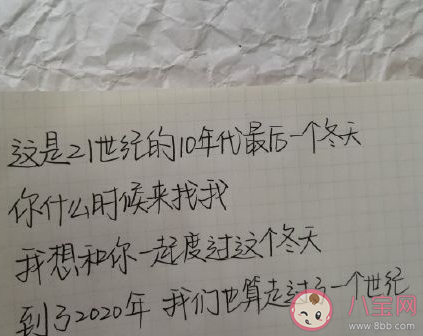 这是21世纪的10年代最后一个冬天
你什么时候来找我
我想和你一起度过这个冬天
到了2020年 我们也算走过了一个世纪
八宝网
www.8bb.com